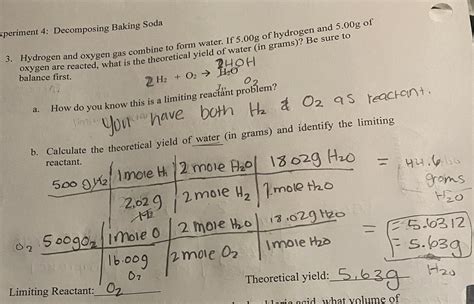 xperiment 4: Decomposing Baking Soda
3. Hydrogen and oxygen gas combine to form water. If 5.00g of hydrogen and 5.00g of
oxygen are reacted, what is the theoretical yield of water (in grams)? Be sure to
balance first.
2 H₂ + O₂ → H₂O
2HOH
O₂
a. How do you know this is a limiting reactant problem?
You have both H₂ & O₂ as reactant.
b. Calculate the theoretical yield of water (in grams) and identify the limiting
reactant.
5.00 g H₂ | 1 mole H₂ | 2 mole H₂O | 18.02g H₂O = 44.6
2.02g H₂ | 2 mole H₂ | 1 mole H₂O grams H₂O
O₂ 5.00g O₂ | 1 mole O | 2 mole H₂O | 18.02g H₂O = 5.6312
16.00g O₂ | 2 mole O₂ | 1 mole H₂O = 5.63g H₂O
Limiting Reactant: O₂ Theoretical yield: 5.63g
acid, what volume of